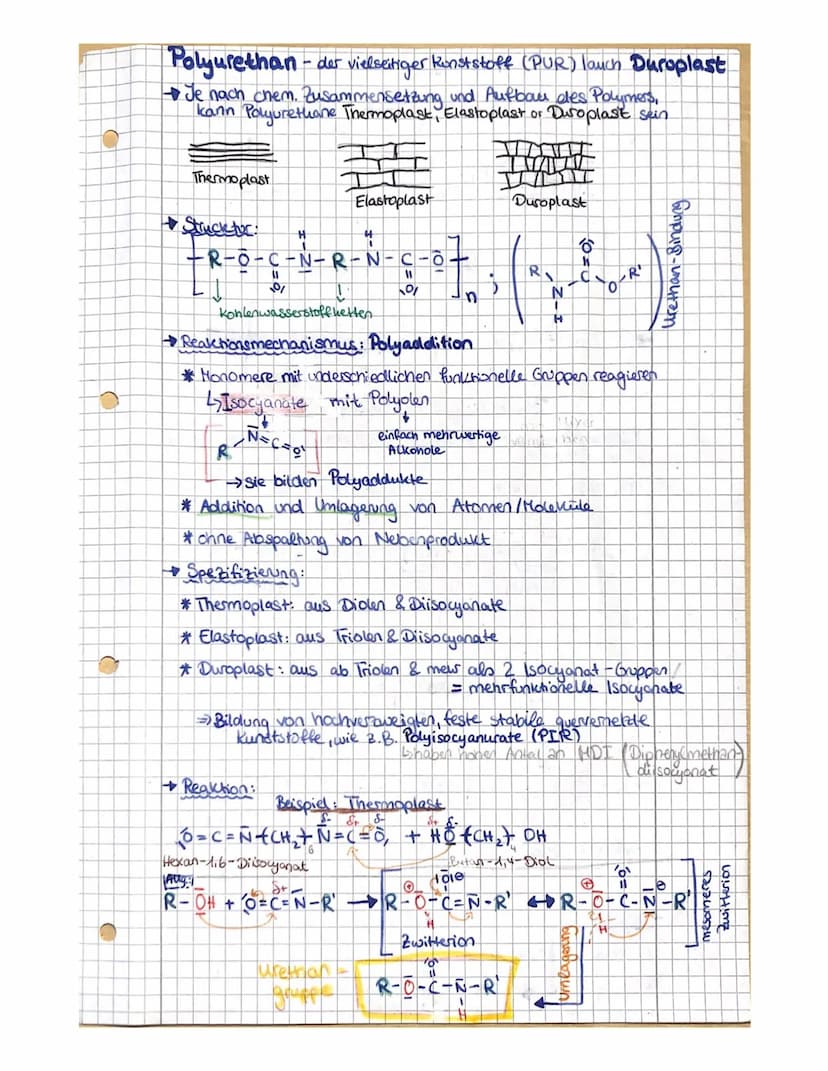 Polyurethan – der vielseitiger Kunststoff (PUR) / auch Duroplast
→ Je nach chem. Zusammensetzung und Aufbau des Polymers,
kann Polyurethane Thermoplast, Elastoplast or Duroplast sein
Thermoplast
Elastoplast
Duroplast
→ Strucktur:
H H
[-R-O-C-N-R-N-C-O-]n ; ( R N C O R' )
O O O H
Urethan-Bindung
Kohlenwasserstoffketten
→ Reaktionsmechanismus: Polyaddition
* Monomere mit underschiedlichen funktionelle Gruppen reagieren
↳ Isocyanate mit Polyolen
R-N=C=O
einfach mehrwertige
Alkohole
→ sie bilden Polyaddukte
* Addition und Umlagerung von Atomen/Moleküle
* ohne Abspaltung von Nebenprodukt
→ Spezifizierung:
* Thermoplast: aus Diolen & Diisocyanate
* Elastoplast: aus Triolen & Diisocyanate
* Duroplast: aus ab Triolen & mehr als 2 Isocyanat-Gruppen/
= mehrfunktionelle Isocyanate
⇒ Bildung von hochverzweigten, feste stabile quervernetzte
Kunststoffe, wie z.B. Polyisocyanurate (PIR)
↳ haben hohen Antal an MDI (Diphenylmethan-
diisocyanat)
→ Reaktion:
Beispiel: Thermoplast
δ- δ+ δ- δ+ δ-
O=C=N-(CH₂)₆-N=C=O + HO-(CH₂)₄-OH
Hexan-1,6-Diisocyanat Butan-1,4-Diol
Allg.:
R-OH + O=C=N-R' → [R-O-C=N-R' ↔ R-O-C-N-R']
δ+ ⊕ |O|⊖ H ⊕ O ⊖ H
mesomeres
Zwitterion
Zwitterion
Umlagerung
Urethan-
gruppe
O
R-O-C-N-R'
H